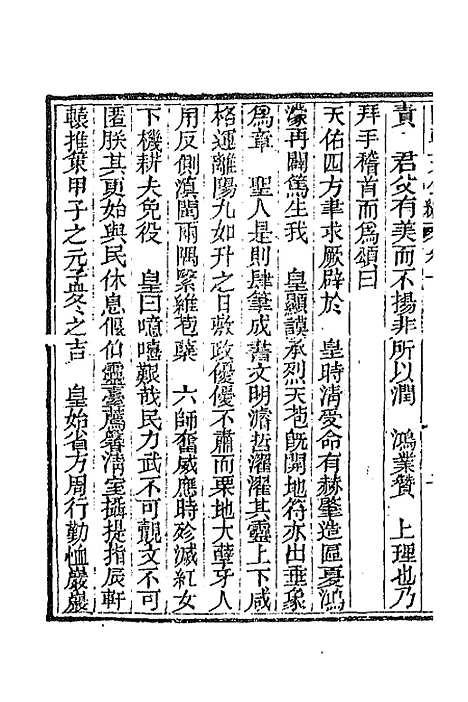 責　君父有美而不揚非所以潤　鴻業贊　上理也乃
拜手稽首而為頌曰
天佑四方聿求厥辟於　皇時清受命有赫肇造區夏鴻
濛再闢篤生我　皇顯謨承烈天苞既開地符亦出垂象
為章　聖人是則肆筆成書文明濬哲濯濯其靈上下咸
格運離陽九如升之日敷政優優不肅而栗地大孽牙人
用反側滇閩兩隅繄維苞蘗　六師奮威應時殄滅紅女
下機耕夫免役　皇曰噫嘻艱哉民力武不可覿文不可
匿朕其更始與民休息偃伯靈臺薦馨清室攝提指辰軒
轅推筴甲子之元孟冬之吉　皇始省方周行勤恤巖巖